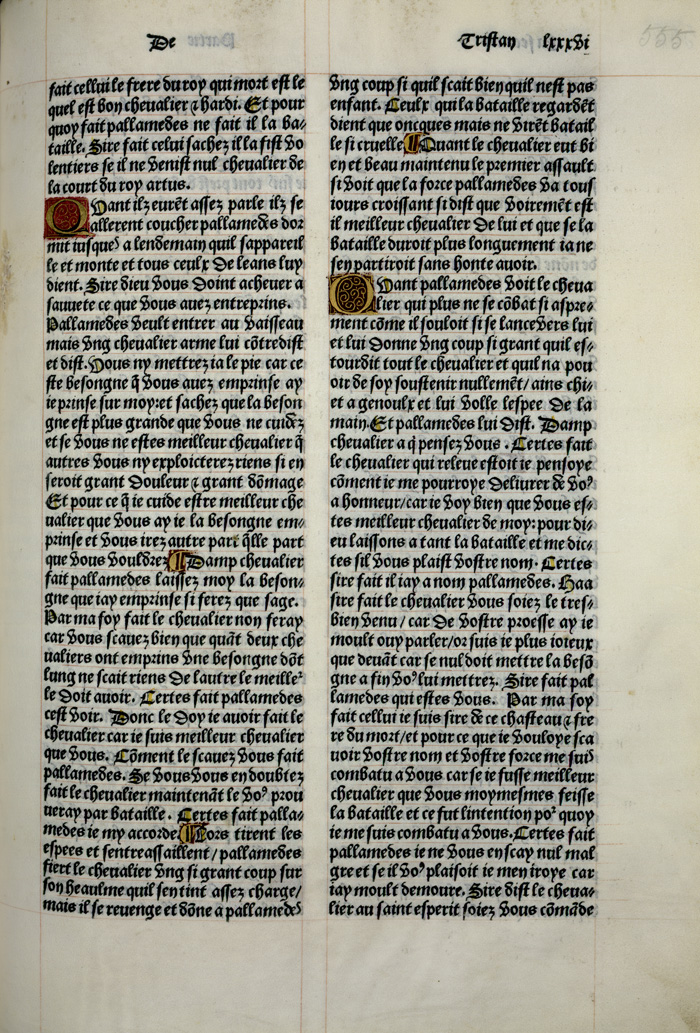 De
Tristan lxxxvi
555
fait cellui le frere du roy qui mort est le
quel est bon chevalier ⁊ hardi. Et pour
quoy fait pallamedes ne fait il la ba⸗
taille. Sire fait celui sachez il la fist vo
lentiers se il ne venist nul chevalier de
la court du roy artus.
Quant ilz eurēt assez parle ilz se
allerent coucher pallamedes dor
mit iusques a lendemain quil sappareil
le et monte et tous ceulx de leans luy
dient. Sire dieu vous doint achever a
sauuete ce que vous auez entreprins.
Pallamedes veult entrer au vaisseau
mais vng chevalier arme lui cōtredist
et dist. vous ny mettrez ia le pie car ce
ste besongne q̄ vous auez emprinse ay
ie prinse sur moy: et sachez que la beson
gne est plus grande que vous ne cuidez
et se vous ne estes meilleur chevalier q̄
autres vous ny exploicterez riens si en
seroit grant douleur ⁊ grant dōmage
Et pour ce q̄ ie cuide estre meilleur che
ualier que vous ay ie la besongne em⸗
prinse et vous irez autre part q̄lle part
que vous vouldrez ¶ Damp chevalier
fait pallamedes laissez moy la beson⸗
gne que iay emprinse si ferez que sage.
Par ma foy fait le chevalier non feray
car vous scauez bien que quāt deux che
ualiers ont emprins vne besongne dōt
lung ne scait riens de lautre le meilleꝰ
le doit auoir. Certes fait pallamedes
cest voir. Donc le doy ie auoir fait le
chevalier car ie suis meilleur chevalier
que vous. Cōment le scauez vous fait
pallamedes. Se vous vous en doubtez
fait le chevalier maintenāt le voꝰ prou
ueray par bataille. Certes fait palla⸗
medes ie my accorde. ¶ Lors tirent les
espees et sentreassaillent / pallamedes
fiert le chevalier vng si grant coup sur
son heaulme quil sen tint assez charge /
mais il se reuenge et dōne a pallamedes
vng coup si quil scait bien quil nest pas
enfant. Ceulx qui la bataille regardēt
dient que oncques mais ne virēt batail
le si cruelle ¶ Quant le chevalier eut bi
en et beau maintenu le premier assault
si voit que la force pallamedes va tous
iours croissant si dist que voirement est
il meilleur chevalier de lui et que se la
bataille duroit plus longuement ia ne
sen partiroit sans honte auoir.
Quant pallamedes voit le cheua
lier qui plus ne se cōbat si aspre⸗
ment cōme il souloit si se lance vers lui
et lui donne vng coup si grant quil es⸗
tourdit tout le chevalier et quil na pou
oir de soy soustenir nullemēt / ains chi⸗
et a genoulx et lui volle lespee de la
main. Et pallamedes lui dist. Damp
chevalier a q̇ pensez vous. Certes fait
le chevalier qui releue estoit ie pensoye
cōment ie me pourroye deliurer de voꝰ
a honneur / car ie voy bien que vous es⸗
tes meilleur chevalier de moy: pour di⸗
eu laissons a tant la bataille et me dic⸗
tes sil vous plaist vostre nom. Certes
sire fait il iay a nom pallamedes. Haa
sire fait le chevalier vous soiez le tres⸗
bien venu / car de vostre proesse ay ie
moult ouy parler / or suis ie plus ioieux
que deuāt car se nul doit mettre la besō
gne a fin voꝰ lui mettrez. Sire fait pal
lamedes qui estes vous. Par ma foy
fait cellui ie suis sire de ce chasteau ⁊ fre
re du mort / et pour ce que ie vouloye sca
uoir vostre nom et vostre force me suis
combatu a vous car se ie fusse meilleur
chevalier que vous moymesmes feisse
la bataille et ce fut lintention poꝛ quoy
ie me suis combatu a vous. Certes fait
pallamedes ie ne vous en scay nul mal
gre et se il voꝰ plaisoit ie men iroye car
iay moult demoure. Sire dist le cheua⸗
lier au saint esperit soiez vous cōmāde